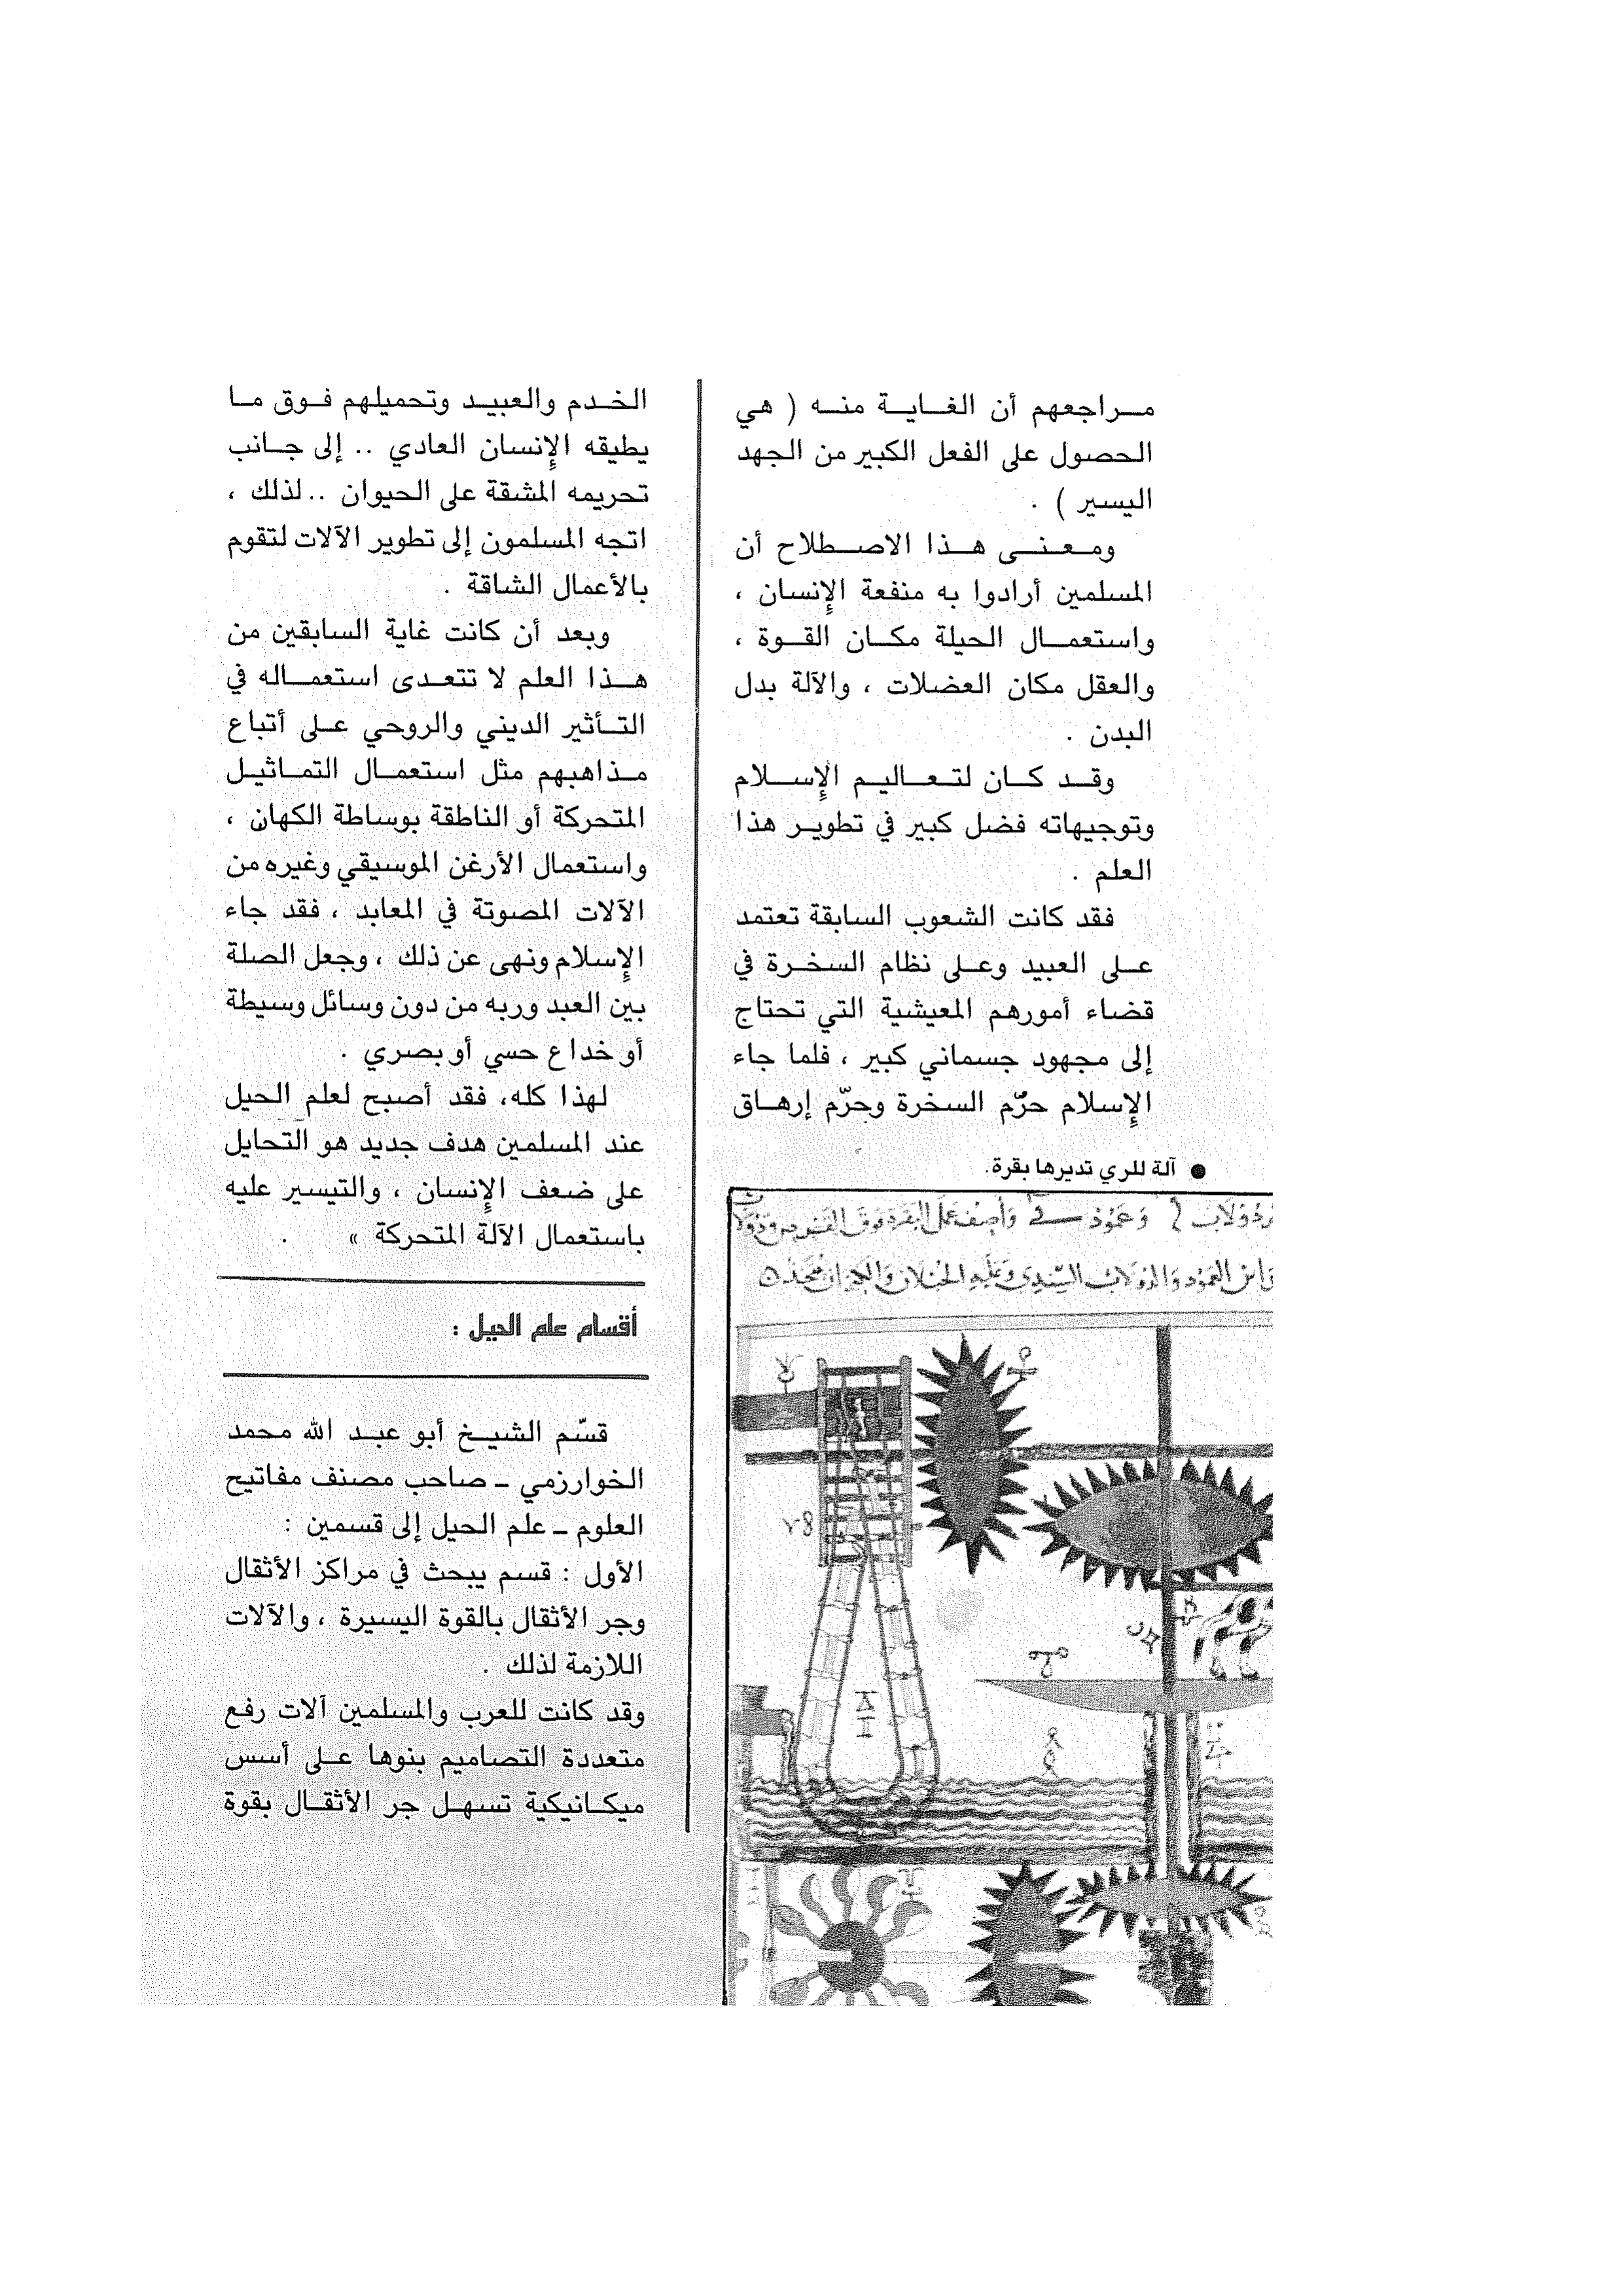 مراجعهم أن الغاية منه ( هي
الحصول على الفعل الكبير من الجهد
اليسير ) .
ومعنى هذا الاصطلاح أن
المسلمين أرادوا به منفعة الإنسان ،
واستعمال الحيلة مكان القوة ،
والعقل مكان العضلات ، والآلة بدل
البدن .
وقد كان لتعاليم الإسلام
وتوجيهاته فضل كبير في تطوير هذا
العلم .
فقد كانت الشعوب السابقة تعتمد
على العبيد وعلى نظام السخرة في
قضاء أمورهم المعيشية التي تحتاج
إلى مجهود جسماني كبير ، فلما جاء
الإسلام حرّم السخرة وحرّم إرهاق
● آلة للري تديرها بقرة.
الخدم والعبيد وتحميلهم فوق ما
يطيقه الإنسان العادي .. إلى جانب
تحريمه المشقة على الحيوان .. لذلك ،
اتجه المسلمون إلى تطوير الآلات لتقوم
بالأعمال الشاقة .
وبعد أن كانت غاية السابقين من
هذا العلم لا تتعدى استعماله في
التأثير الديني والروحي على أتباع
مذاهبهم مثل استعمال التماثيل
المتحركة أو الناطقة بوساطة الكهان ،
واستعمال الأرغن الموسيقي وغيره من
الآلات المصوتة في المعابد ، فقد جاء
الإسلام ونهى عن ذلك ، وجعل الصلة
بين العبد وربه من دون وسائل وسيطة
أو خداع حسي أو بصري .
لهذا كله، فقد أصبح لعلم الحيل
عند المسلمين هدف جديد هو التحايل
على ضعف الإنسان ، والتيسير عليه
باستعمال الآلة المتحركة » .
أقسام علم الحيل :
قسّم الشيخ أبو عبد الله محمد
الخوارزمي ـ صاحب مصنف مفاتيح
العلوم ـ علم الحيل إلى قسمين :
الأول : قسم يبحث في مراكز الأثقال
وجر الأثقال بالقوة اليسيرة ، والآلات
اللازمة لذلك .
وقد كانت للعرب والمسلمين آلات رفع
متعددة التصاميم بنوها على أسس
ميكانيكية تسهل جر الأثقال بقوة